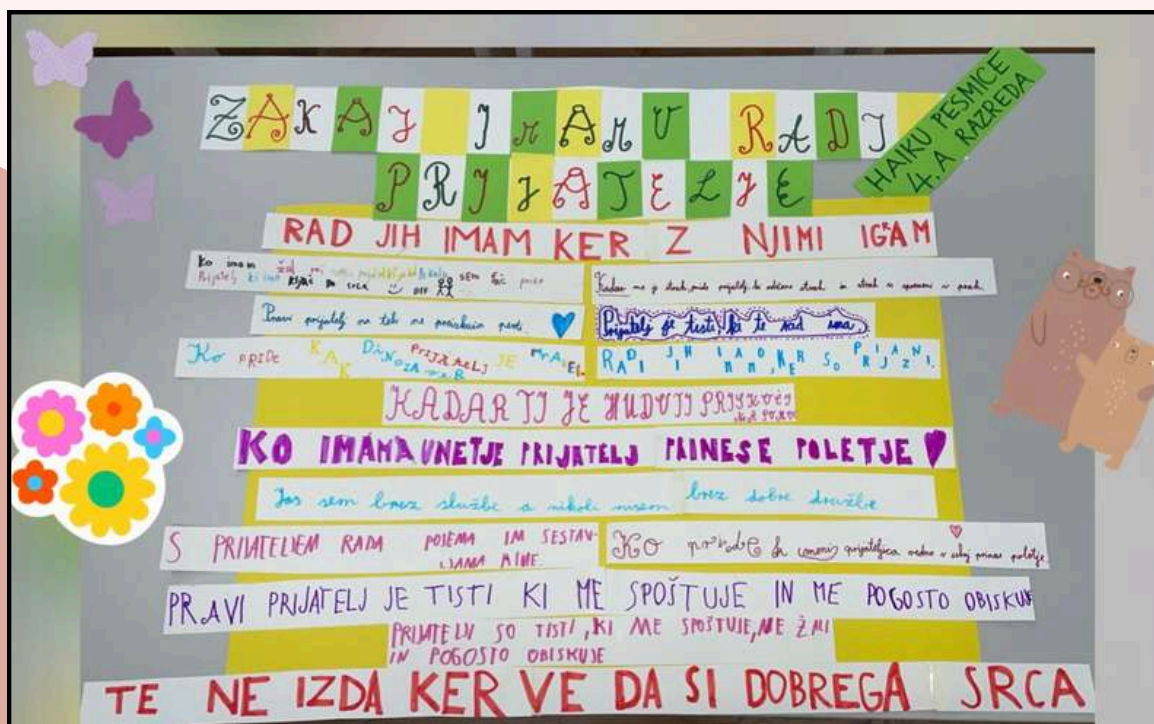 ZAKAJ IMAMO RADI
PRIJATELJE
HAIKU PESMICE
4.A RAZREDA
RAD JIH IMAM KER Z NJIMI IGRAM
Ko imam
Prijatelj ki ima ključ do srca
Kadar me je strah, pride prijatelj, in strah se spremeni v prah.
Pravi prijatelj na te ne pozabi
Prijatelj je tisti, ki te rad ima.
Ko PRIDE KAK DINOZAVER PRIJATELJ JE
RADI JIH IMAMO, KER SO PRIJAZNI.
KADAR TI JE HUDO TI PRISKOČI NA POMOČ
KO IMAMA VNETJE PRIJATELJ PRINESE POLETJE
Jas sem brez službe a nikoli nisem brez dobre družbe
S PRIJATELJEM RADA POJEMA IM SESTAV-
LJAMA RIME.
Ko pride k meni prijateljica vedno v sebi prinese poletje.
PRAVI PRIJATELJ JE TISTI KI ME SPOŠTUJE IN ME POGOSTO OBISKUJE
PRIJATELJI SO TISTI, KI ME SPOŠTUJE, NE ŽALI
IN POGOSTO OBISKUJE
TE NE IZDA KER VE DA SI DOBREGA SRCA